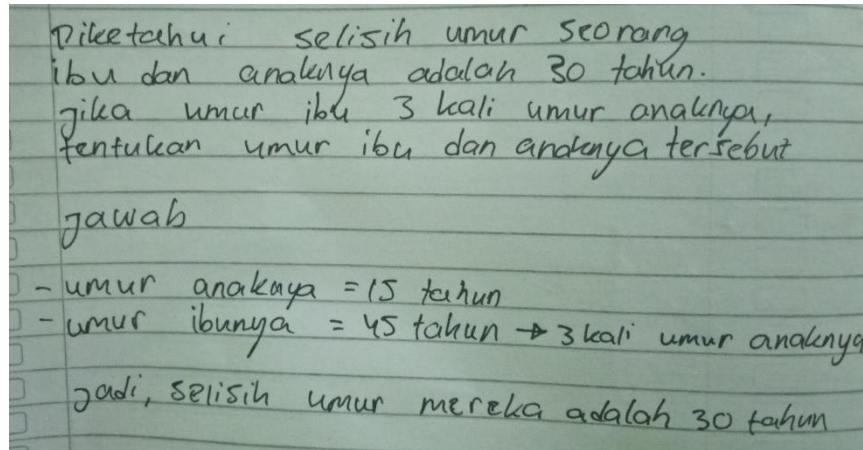 Diketahui selisih umur seorang
ibu dan anaknya adalah 30 tahun.
jika umur ibu 3 kali umur anaknya,
tentukan umur ibu dan anaknya tersebut
jawab
- umur anaknya = 15 tahun
- umur ibunya = 45 tahun → 3 kali umur anaknya
jadi, selisih umur mereka adalah 30 tahun